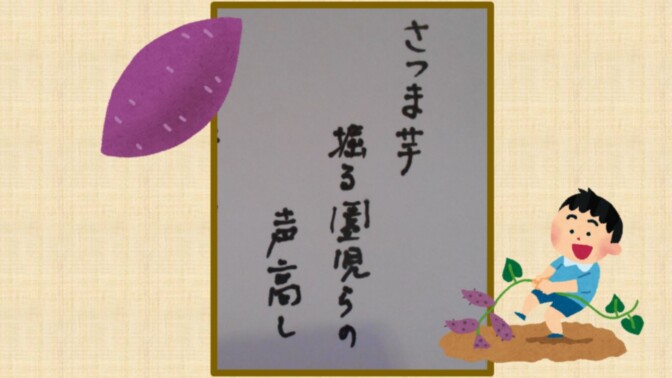 さつま芋
掘る園児らの
声高し